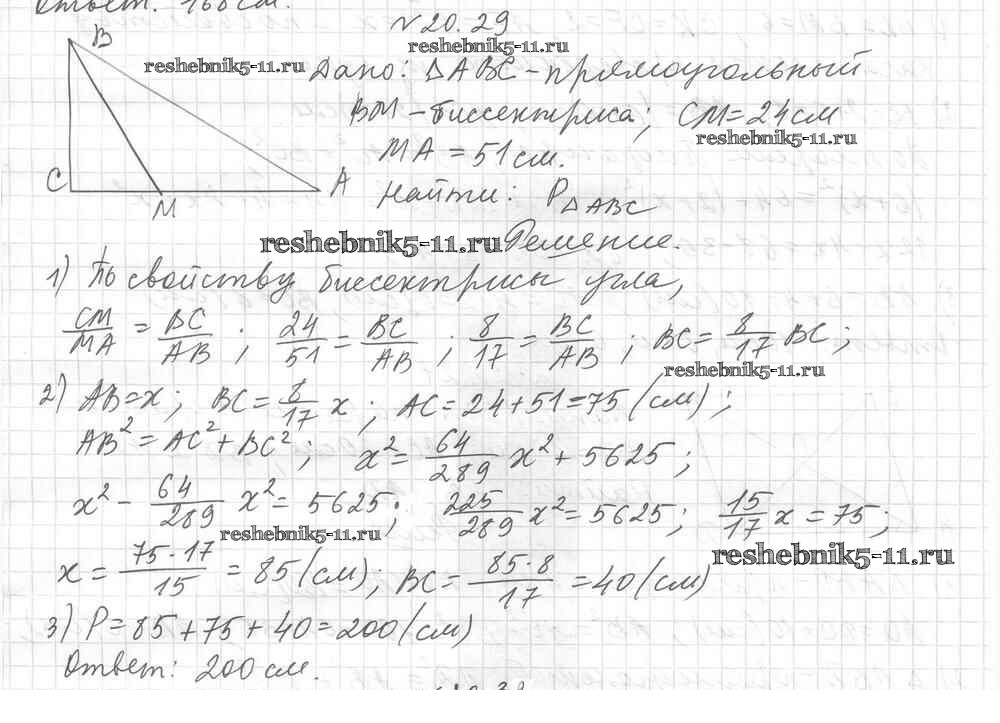 Ответ: 168 см.
№20.29
reshebnik5-11.ru
B
reshebnik5-11.ru
Дано: △ABC - прямоугольный
BM - биссектриса; CM = 24 см
reshebnik5-11.ru
MA = 51 см.
C M A
Найти: P△ABC
reshebnik5-11.ru Решение.
1) По свойству биссектрисы угла,
CM/MA = BC/AB; 24/51 = BC/AB; 8/17 = BC/AB; BC = 8/17 BC;
reshebnik5-11.ru
2) AB = x; BC = 8/17 x; AC = 24 + 51 = 75 (см);
AB² = AC² + BC²; x² = 64/289 x² + 5625;
x² - 64/289 x² = 5625; 225/289 x² = 5625; 15/17 x = 75;
reshebnik5-11.ru
reshebnik5-11.ru
x = 75·17/15 = 85 (см); BC = 85·8/17 = 40 (см)
3) P = 85 + 75 + 40 = 200 (см)
Ответ: 200 см.